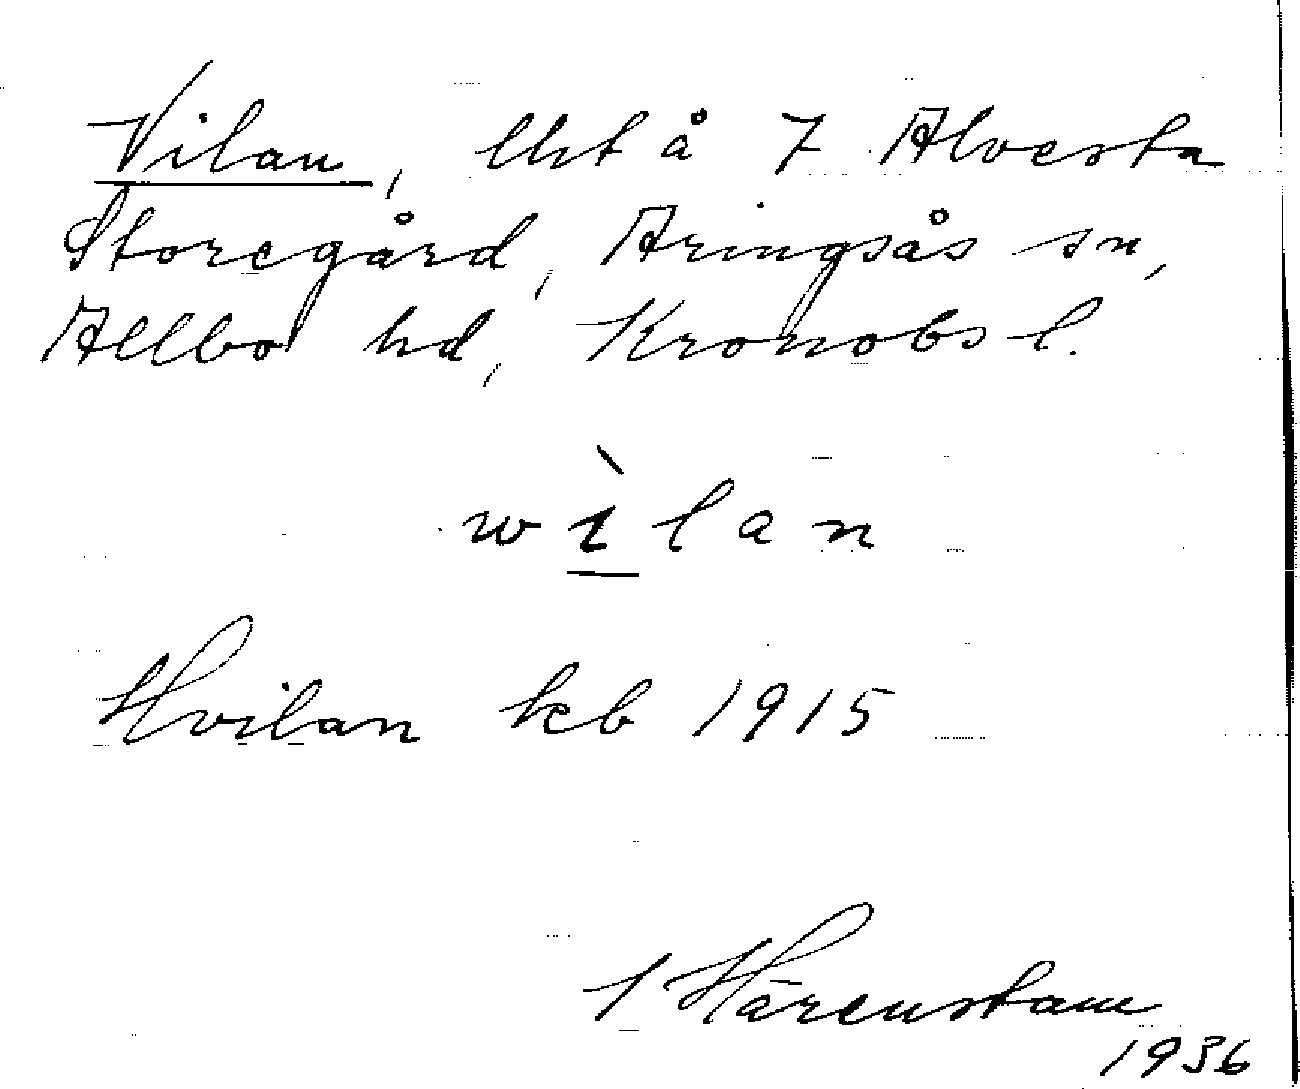 Vilan, lht å 7 Alvesta
Storegård, Aringsås sn,
Allbo hd, Kronobs l.
wìlan
Hvilan kb 1915
J Hårenstam
1936